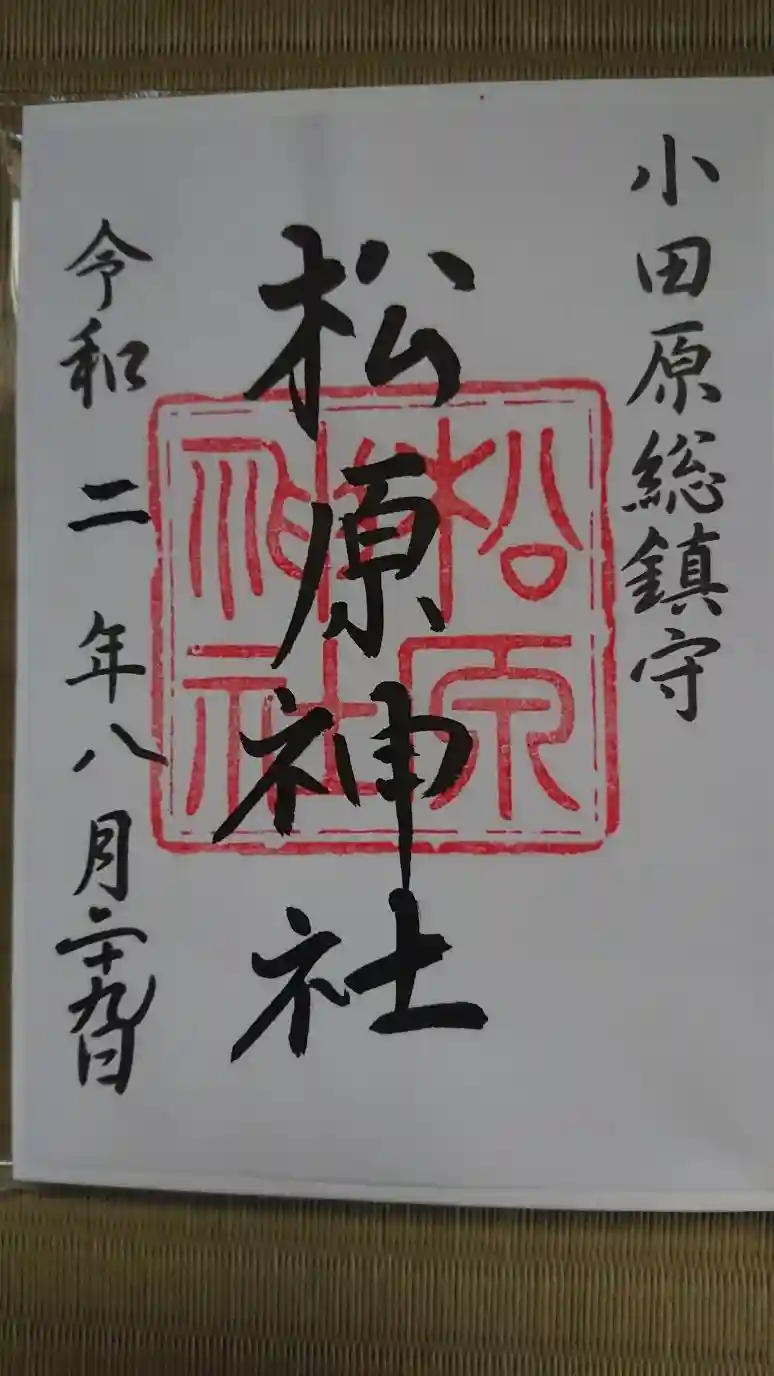 小田原総鎮守
松原神社
松原
神社
令和二年八月二十九日